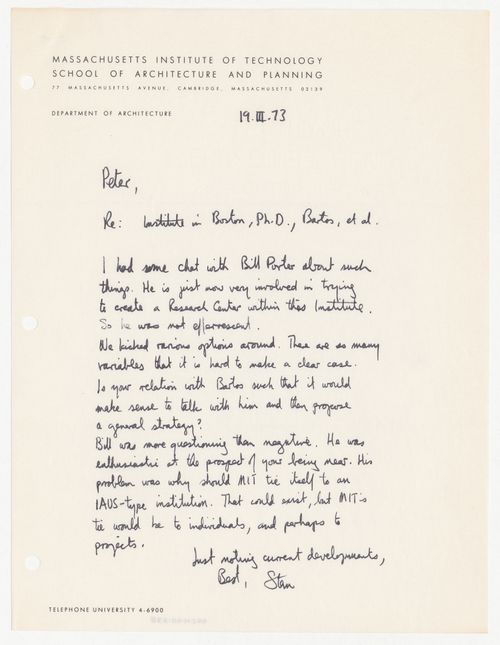 MASSACHUSETTS INSTITUTE OF TECHNOLOGY
SCHOOL OF ARCHITECTURE AND PLANNING
77 MASSACHUSETTS AVENUE, CAMBRIDGE, MASSACHUSETS 02139
DEPARTMENT OF ARCHITECTURE
19.III.73
Peter,
Re: Institute in Boston, Ph.D., Bartos, et al.
I had some chat with Bill Porter about such
things. He is just now very involved in trying
to create a Research Center within this Institute.
So he was not effervescent.
We kicked various options around. There are so many
variables that it is hard to make a clear case.
Is your relation with Bartos such that it would
make sense to talk with him and then propose
a general strategy?
Bill was more questioning than negative. He was
enthusiastic at the prospect of your being near. His
problem was why should MIT tie itself to an
IAUS-type institution. That could exist, but MIT's
tie would be to individuals, and perhaps to
projects.
Just noting current developments,
Best, Stan
TELEPHONE UNIVERSITY 4-6900